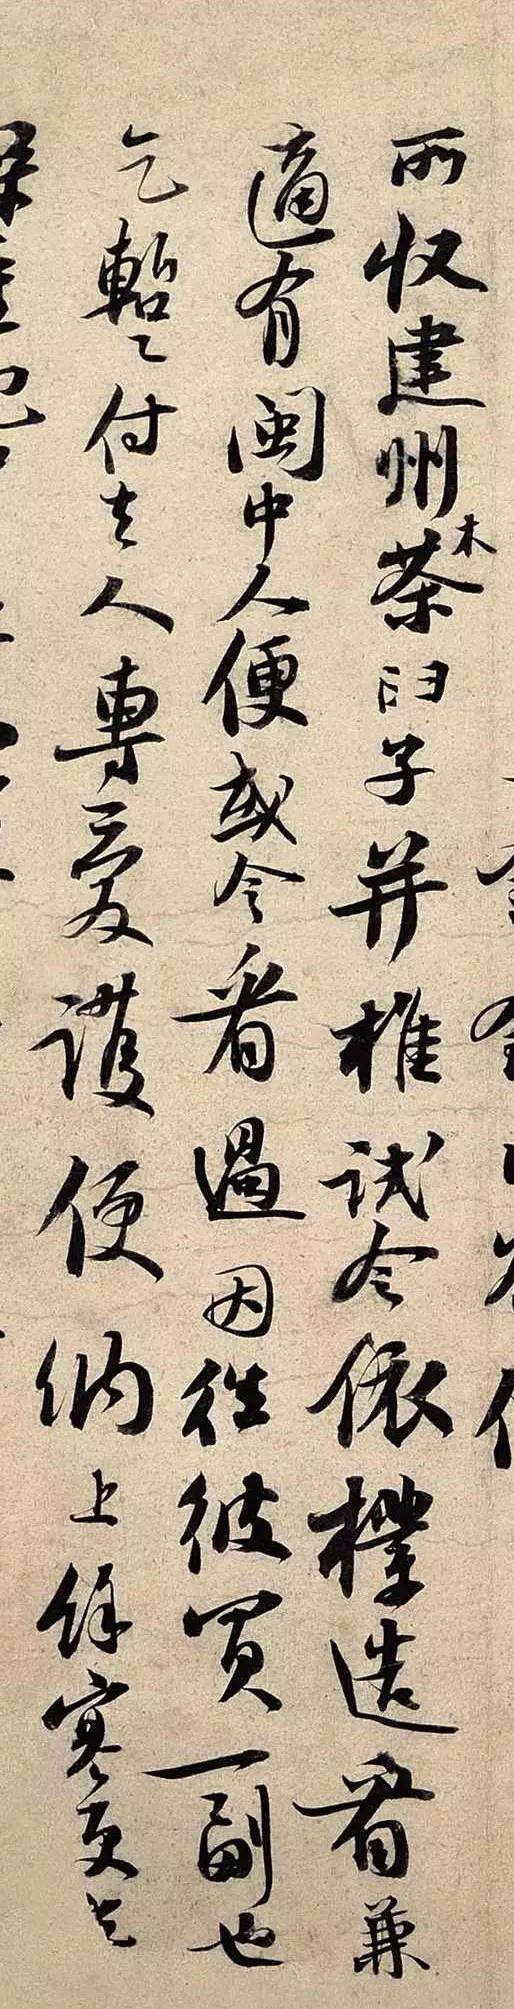 所收建州木茶臼子并椎試令依樣造看兼
適有閩中人便或令看過因往彼買一副也
乞暫付去人專愛護便納上餘寒更乞